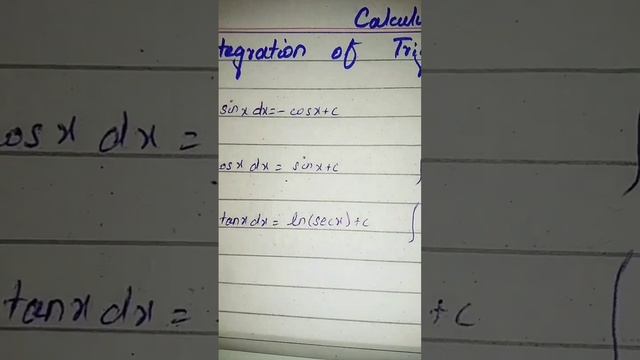 Calcul
tegration of Trig
sinx dx = - cosx+c
osx dx = sinx+c
tanx dx = ln(secx)+c ∫
osx dx =
tanx dx = +c